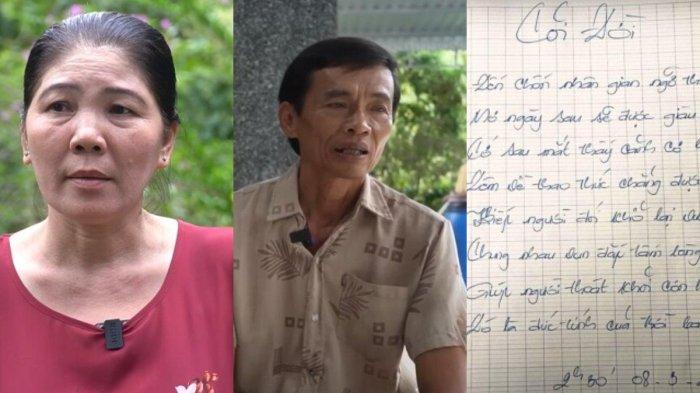 Cõi Đời
Đến chốn nhân gian ngỡ
Mơ ngày sau sẽ được giàu
Cớ sao mắt thấy cảnh cơ
Đêm về thao thức chẳng được
Kiếp người đói khổ lại
Chung nhau vun đắp tấm lòng
Giúp người thoát khổ còn
Đó là đức tính của trời
2h30' 08-3-